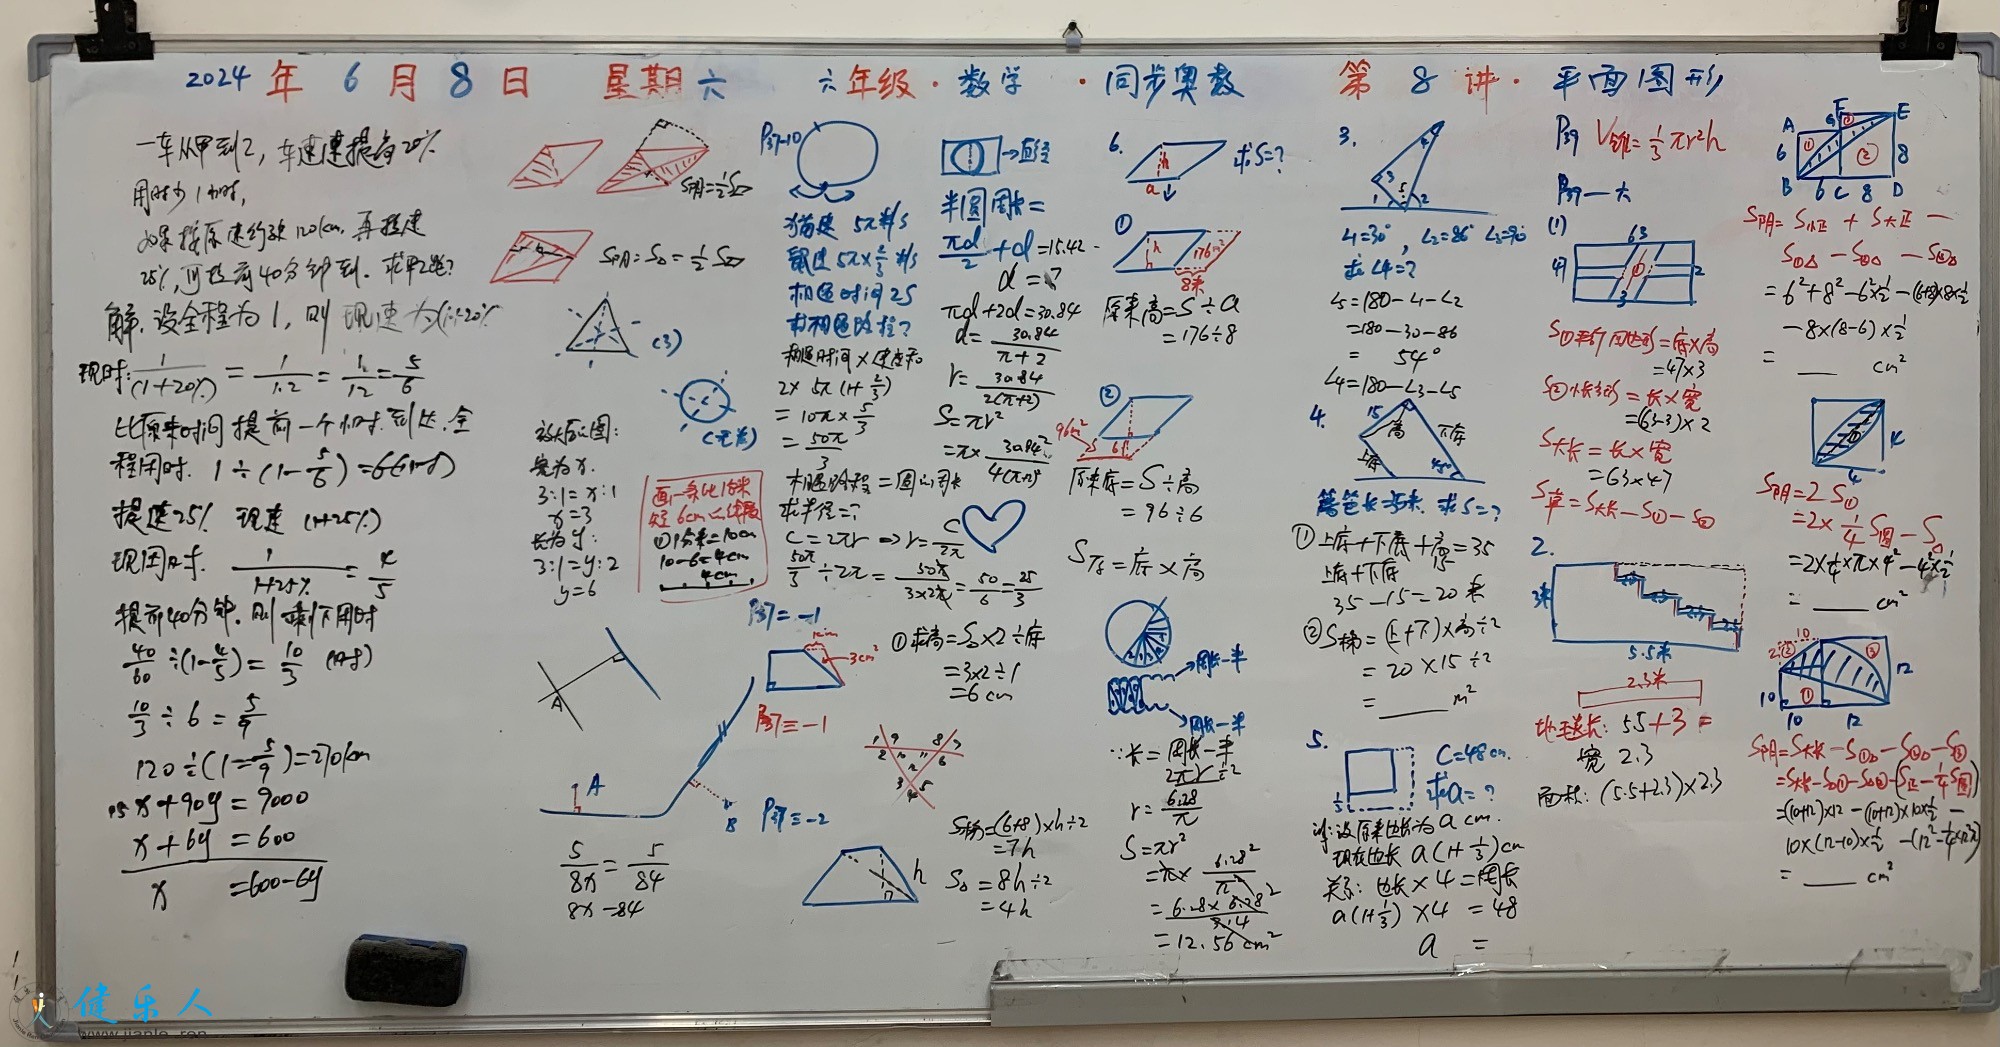 2024年6月8日 星期六 六年级·数学·同步奥数 第8讲·平面图形
一车从甲到乙,车速提高20%
用时少1小时,
如果按原速行驶120km,再提速
25%,可提前40分钟到.求甲乙路?
解:设全程为1,则现速为(1+20%)
现时:1/(1+20%) = 1/1.2 = /12 = 5/6
比原来时间提前一个小时到达,全
程用时 1÷(1-5/6)=6(时)
提速25% 现速 (1+25%)
现因时. 1/1+25% = 4/5
提前40分钟,则剩下用时
40/60÷(1-4/5)=10/3 (时)
10/3÷6=5/9
120÷(1-5/9)=270km
15x+90y=9000
x+6y=600
x =600-6y
S阴=1/2S
S阴=S△=1/2S
(3)
(无数)
放大后的图:
宽为x.
3:1=x:1
x=3
长为y:
3:1=y:2
y=6
画一条比1分米
短6cm的线段
①1分米=10cm
10-6=4cm
4cm
A
A
B
5/8x=5/84
8x=84
P37-10
猫速 5π米/s
鼠速 5π×2/3 米/s
相遇时间2S
求相遇路程?
相遇时间×速度和
2×5π(1+2/3)
=10π×5/3
=50π/3
相遇路程=圆的周长
求半径=?
C=2πr ⇒ r=C/2π
50π/3÷2π=50π/3×2π=50/6=25/3
P37=-1
1cm
3cm²
①求高=S△×2÷底
=3×2÷1
=6cm
P37三-1
1 9 8 7
2 10 11 6
3 4 5
P37三-2
h
S梯=(6+8)×h÷2
=7h
S△=8h÷2
=4h
→直径
半圆周长=
πd/2+d=15.42
d=?
πd+2d=30.84
d=30.84/π+2
r=30.84/2(π+2)
S=πr²
=π×30.84²/4(π+2)²
6.
h
a
求S=?
①
h
176m²
8米
原来高=S÷a
=176÷8
②
96m²
6
原来底=S÷高
=96÷6
S原=底×高
→周长一半
→周长一半
∵长=周长一半
2πr÷2
r=6.28/π
S=πr²
=π×6.28²/π²
=6.28×6.28/3.14
=12.56cm²
3.
4
3
5
1 2
∠1=30°,∠2=86° ∠3=90°
求∠4=?
∠5=180-∠1-∠2
=180-30-86
= 54°
∠4=180-∠3-∠5
4.
15
高
下底
上底
45°
篱笆长35米.求S=?
①上底+下底+高=35
15
上底+下底
35-15=20米
②S梯=(上+下)×高÷2
=20×15÷2
=____m²
5.
1/3
C=48cm.
求a=?
解:设原来边长为a cm.
现在边长 a(1+1/3)cm
关系:边长×4=周长
a(1+1/3)×4 =48
a =
P39 V锥=1/3πr²h
P39一大
(1)
63
47
①
2
3
S①平行四边形=底×高
=47×3
S②小长方形=长×宽
=(63-3)×2
S大长=长×宽
=63×47
S草=S大长-S①-S②
2.
3米
5.5米
2.3米
地毯长:5.5+3=
宽 2.3
面积:(5.5+2.3)×2.3
A F E
G
6 ① ② 8
B 6 C 8 D
S阴=S小正+S大正-
S①△-S②△-S③△
=6²+8²-6²×1/2-(6+8)×8×1/2
-8×(8-6)×1/2
=____cm²
4
4
S阴=2S①
=2×1/4S圆-S△
=2×1/4×π×4²-4²×1/2
=____cm²
10
2 ② ③
12
10 ①
10 12
S阴=S大长-S①△-S②△-S③
=S大长-S①-S②-(S正-1/4S圆)
=(10+12)×12-(10+12)×10×1/2-
10×(12-10)×1/2-(12²-1/4×12²π)
=____cm²
健乐人
www.jianle.ren